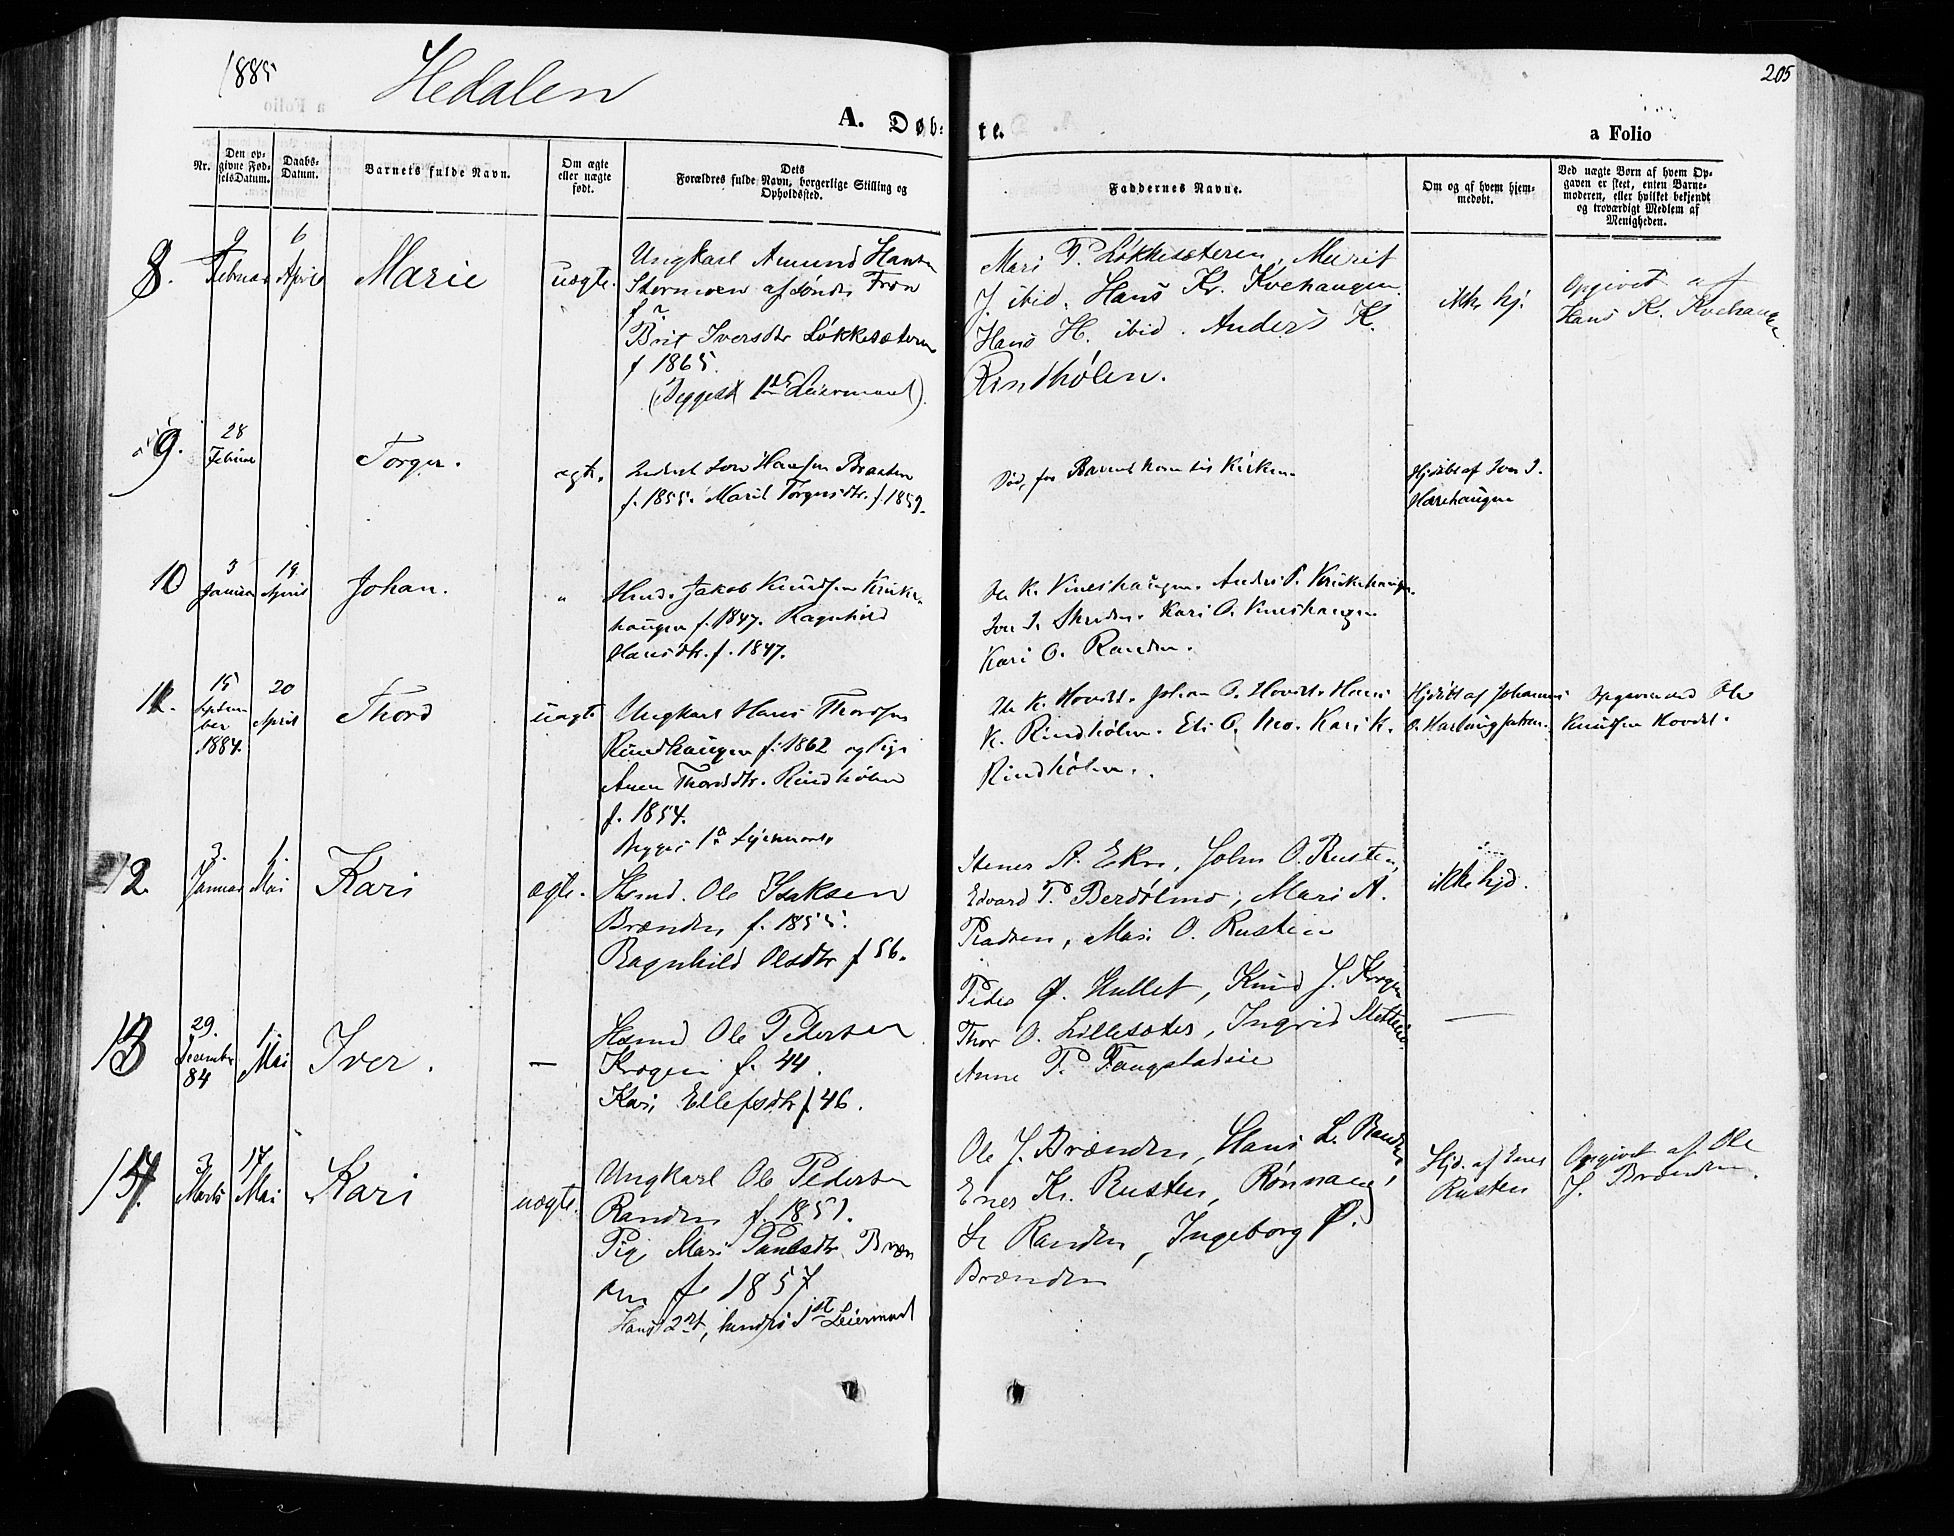 1885
Hedalen
205
A. Døb-
te.
a Folio
Nr.
Den op-
givne Fød-
selsDatum.
Daabs-
Datum.
Barnets fulde Navn.
Om ægte
eller uægte
født.
Dets
Forældres fulde Navn, borgerlige Stilling og
Opholdssted.
Faddernes Navne.
Om og af hvem hjem-
medøbt.
Ved uægte Børn af hvem Op-
gaven er skeet, enten Barne-
moderen, eller hvilket bekjendt
og troværdigt Medlem af
Menigheden.
8.
9
Februar
6
April
Marie
uægte.
Ungkarl Amund Hansen
af søndre Fron
f ?
Brit Iversdtr Løkkesæteren
f 1865.
(Begges 1ste Leiermaal).
Mari P. Løkkesæteren, Marit
J. ibid. Hans Kr. Kvehaugen.
Hans H. ibid. Anders K.
Rindhølen.
ikke hj.
Opgivet af
Hans K. Kvehaugen
9.
28
Februar
Torger.
ægte.
Iver Hansen Braaten
f. 1855. Marit Torgersdtr. f. 1859.
Død, før Barnet kom til Kirken.
Hjdøbt af Iver I.
Harehaugen
10
3
Januar
19
April
Johan.
"
Husm. Jakob Knudsen Kruke-
haugen f. 1847. Ragnhild
Hansdtr. f. 1847.
Ole K. Krueshaugen. Anders P. Krukehaugen.
Iver I. Skruden. Kari O. Krueshaugen
Kari O. Randen.
11.
15
Septem
ber
1884.
20
April
Thord
uægte
Ungkarl Hans Thordsen
Rindhaugen f. 1862 og Pige
Anne Thordsdtr. Rindhølen
f. 1854.
Begges 1ste Lejermaal
Ole K. Hovde. Johan O. Hovde. Hans
K. Rindhølen. Eli O. Mo. Kari K.
Rindhølen.
Hjdøbt af Johannes
O.
Opgiven ved Ole
Knudsen Hovde.
12.
3.
Januar
1.
Mai
Kari
ægte.
Husmd. Ole Isaksen
Brænden f. 1855.
Ragnhild Olsdtr f 56.
Stener A. Ekre, John O. Rusten,
Edvard P. Berdølmo, Mari A.
Pladsen, Mari O. Rusten
ikke hjd.
13
29.
December
84
1.
Mai
Iver.
—
Husmd Ole Pedersen
Krogen f. 44.
Kari Ellefsdtr f. 46.
Peder O. Hullet, Knud J. Krogen
Thor O. Lillesæter, Ingrid
Anne P. Faugstadeie
—
14.
3
Marts
17
Mai
Kari
uægte.
Ungkarl Ole Pedersen
Randen f. 1851.
Pige Mari Paulsdtr. Bræn
den f. 1857
Hans 2det, hendes 1ste Leiermaal
Ole J. Brænden, Hans L. Randen
Ener Kr. Rusten, Rønnaug
L. Randen, Ingeborg P.
Brænden
Hjd. af Ener
Rusten
Opgivet af Ole
J. Brænden.